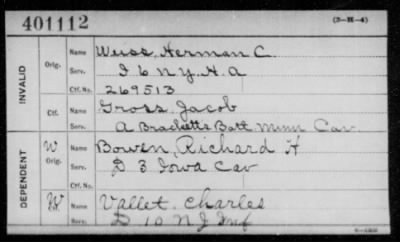 401112 (3-M-4)
INVALID Orig. Name Weiss, Herman C.
Serv. I 6 N.Y. H.A
Ctf. No. 269513
Ctf. Name Gross, Jacob
Serv. A Bracketts Batt Minn Cav.
DEPENDENT W Orig. Name Bowen, Richard H
Serv. D 3 Iowa Cav
Ctf. No.
W Name Vallet, Charles
Serv. D 10 N J Inf